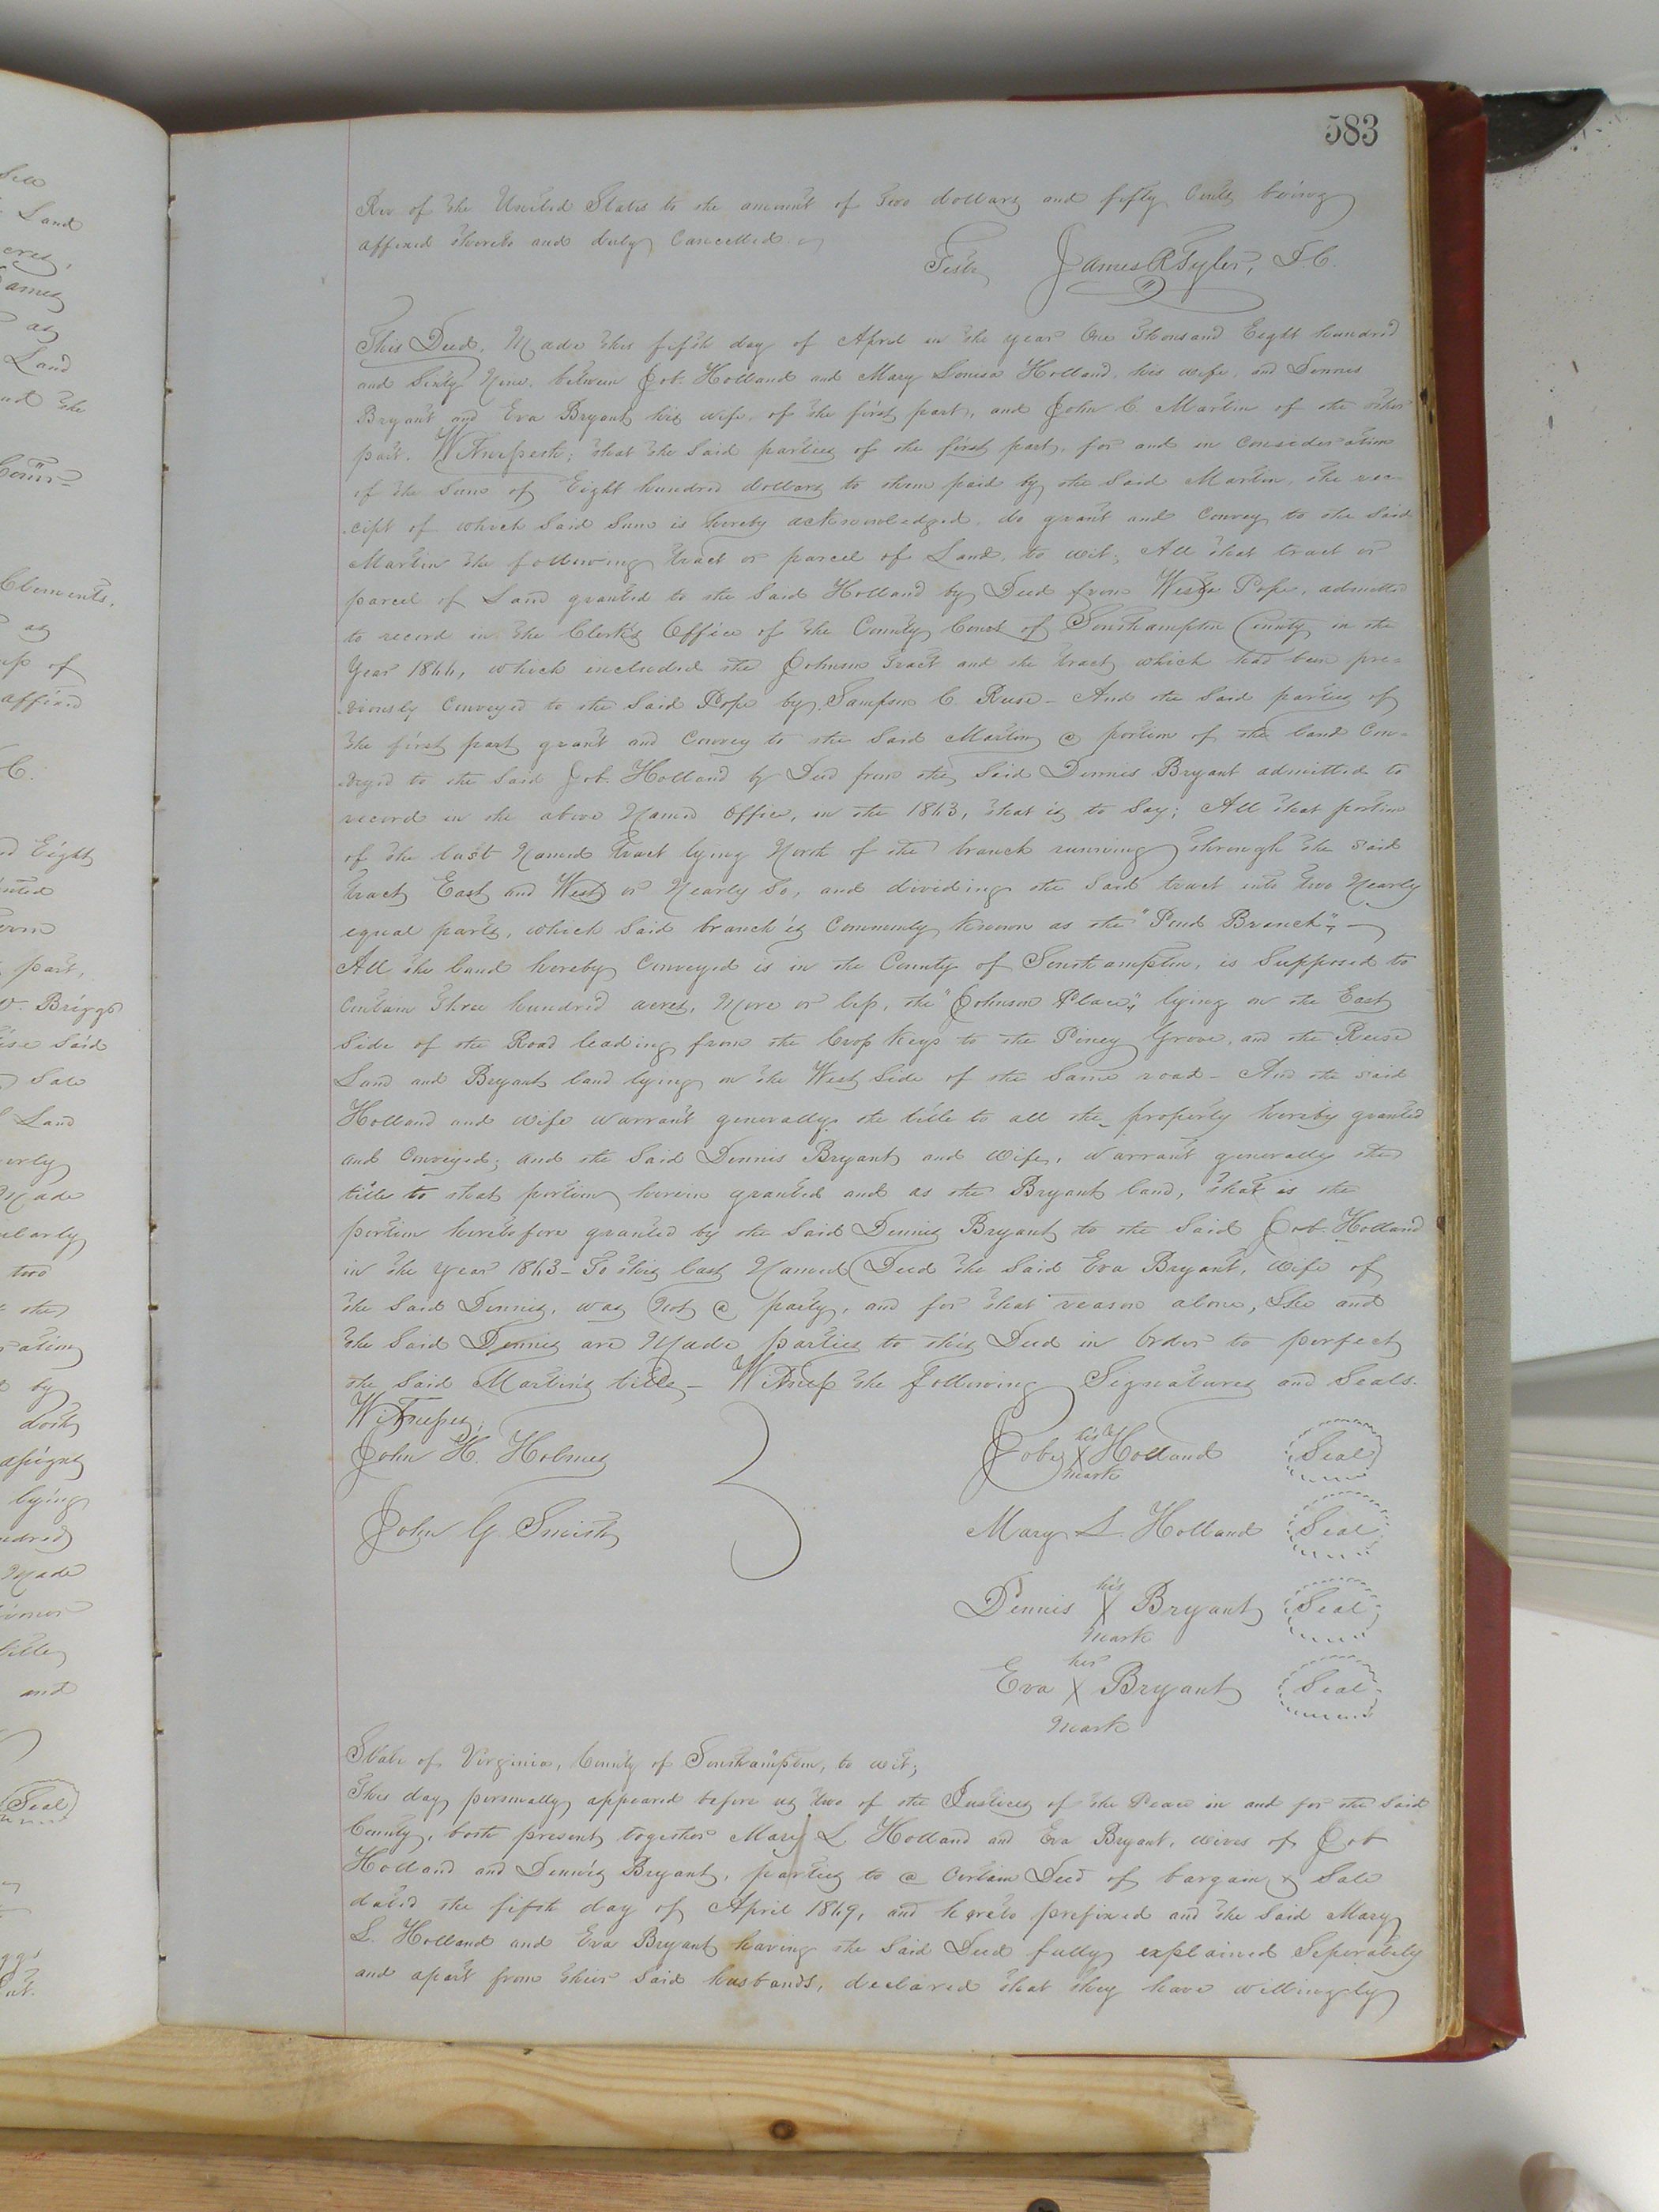 583
Rev of the United States to the amount of Two dollars and fifty Cents being
affixed thereto and duly Cancelled.
Teste James R Tyler, D.C.
This Deed, Made this fifth day of April in the year One Thousand Eight hundred
and Sixty Nine, between Job. Holland and Mary Louisa Holland, his wife, and Dennis
Bryant and Eva Bryant his wife, of the first part, and John C. Martin of the other
part. Witnesseth; that the Said parties of the first part, for and in Consideration
of the Sum of Eight hundred dollars to them paid by the Said Martin, the rec-
cipt of which Said Sum is hereby acknowledged, do grant and Convey to the Said
Martin the following tract or parcel of Land, to wit; All that tract or
parcel of Land granted to the Said Holland by Deed from Pope, admitted
to record in the Clerk's Office of the County Court of Southampton County in the
Year 1866, which included the Johnson Tract and the tract which had been pre-
viously Conveyed to the Said Pope by Sampson C. Reese - And the Said parties of
the first part grant and Convey to the Said Martin a portion of the land Con-
veyed to the Said Job. Holland by Deed from the Said Dennis Bryant admitted to
record in the above Named Office, in the 1863, that is to Say; All that portion
of the last Named tract lying North of the branch running through the said
tract East and West or Nearly So, and dividing the Said tract into two Nearly
equal parts, which Said branch is Commonly Known as the "Pond Branch"; -
All the land hereby Conveyed is in the County of Southampton, is Supposed to
Contain Three hundred acres, More or less, the "Johnson Place", lying on the East
Side of the Road leading from the Cross Keys to the Piney Grove, and the Reese
Land and Bryant land lying on the West Side of the Same road - And the said
Holland and wife warrant generally the title to all the property hereby granted
and Conveyed; and the Said Dennis Bryant and Wife, warrant generally the
title to that portion herein granted and as the Bryant land, that is the
portion heretofore granted by the Said Dennis Bryant to the Said Job. Holland
in the Year 1863 - To this last Named Deed the Said Eva Bryant, Wife of
the Said Dennis, was Not a party, and for that reason alone, She and
the Said Dennis are Made parties to this Deed in Order to perfect
the Said Martin's title - Witness the following Signatures and Seals.
Witnesses;
John H. Holmes
John G. Smith
his
Job X Holland Seal
mark
Mary L Holland Seal
his
Dennis X Bryant Seal
mark
her
Eva X Bryant Seal
mark
State of Virginia, County of Southampton, to wit;
This day personally appeared before us two of the Justices of the Peace in and for the Said
County, both present together Mary L Holland and Eva Bryant, wives of Job
Holland and Dennis Bryant, parties to a Certain Deed of bargain & Sale
dated the fifth day of April 1869, and hereto prefixed and the Said Mary
L. Holland and Eva Bryant having the Said Deed fully explained Seperately
and apart from their Said husbands, declared that they have willingly